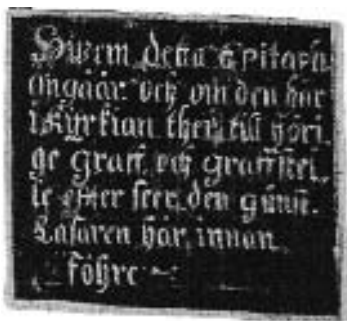 Hwem detta Epitaph
angåår och om den här
i Kyrkian ther till höri-
ge graff, och graffstei-
le effter seer, den günst.
Läsaren här innan
föhre